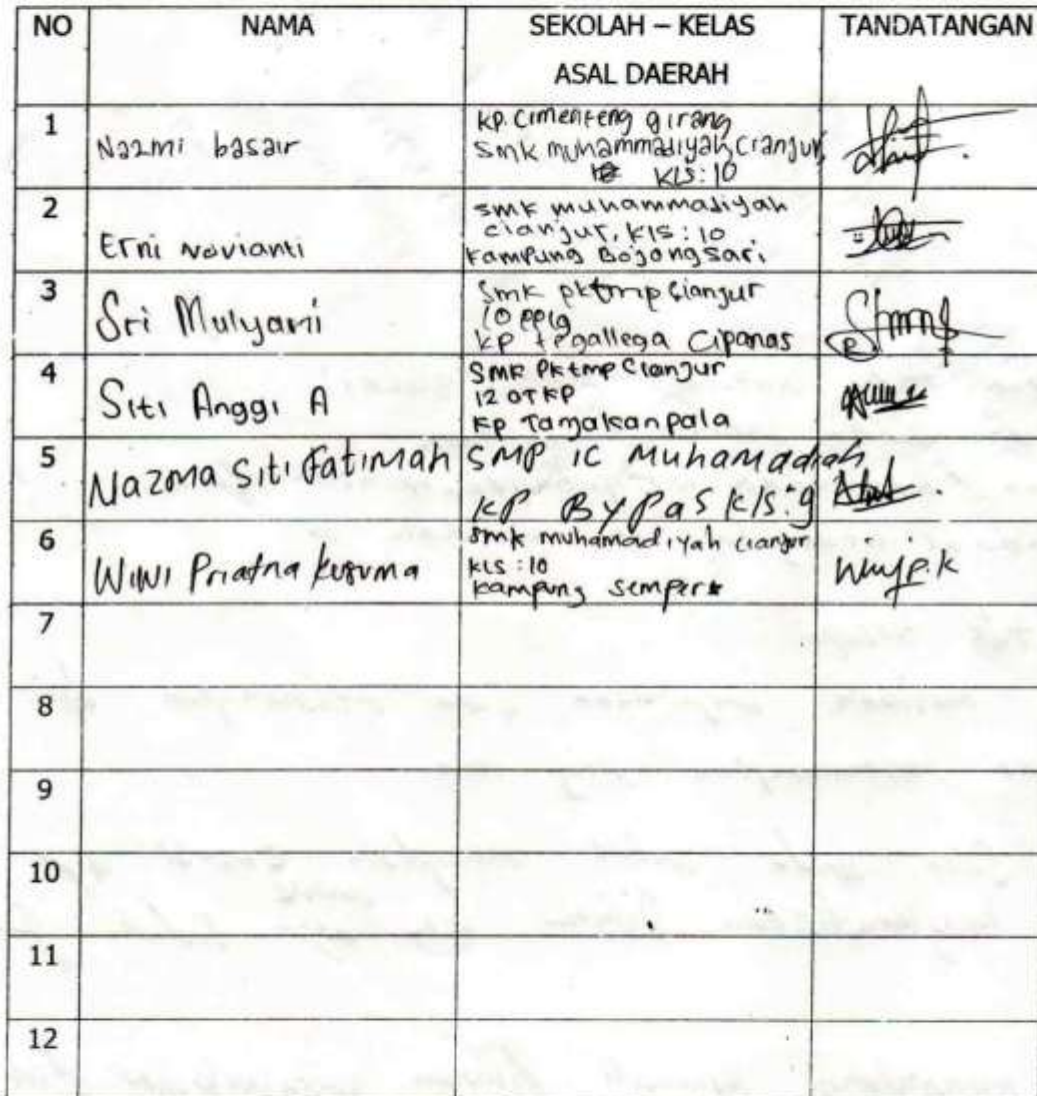 NO NAMA SEKOLAH – KELAS TANDATANGAN
ASAL DAERAH
1 Nazmi basair
kp. cimenteng girang
smk muhammadiyah cianjur,
kls:10
2 Erni Novianti
smk muhammadiyah
cianjur, kls:10
kampung Bojongsari
3 Sri Mulyani
Smk pktmp cianjur
10 pplg
kp tegallega Cipanas
4 Siti Anggi A
Smk Pktmp Cianjur
12 OTKP
kp Tamjakanpala
5 Nazma Siti Fatimah
SMP ic Muhamadiah
KP BYPas kls:9
6 Wiwi Priatna kusuma
smk muhamadiyah cianjur
kls:10
kampung semper
7
8
9
10
11
12